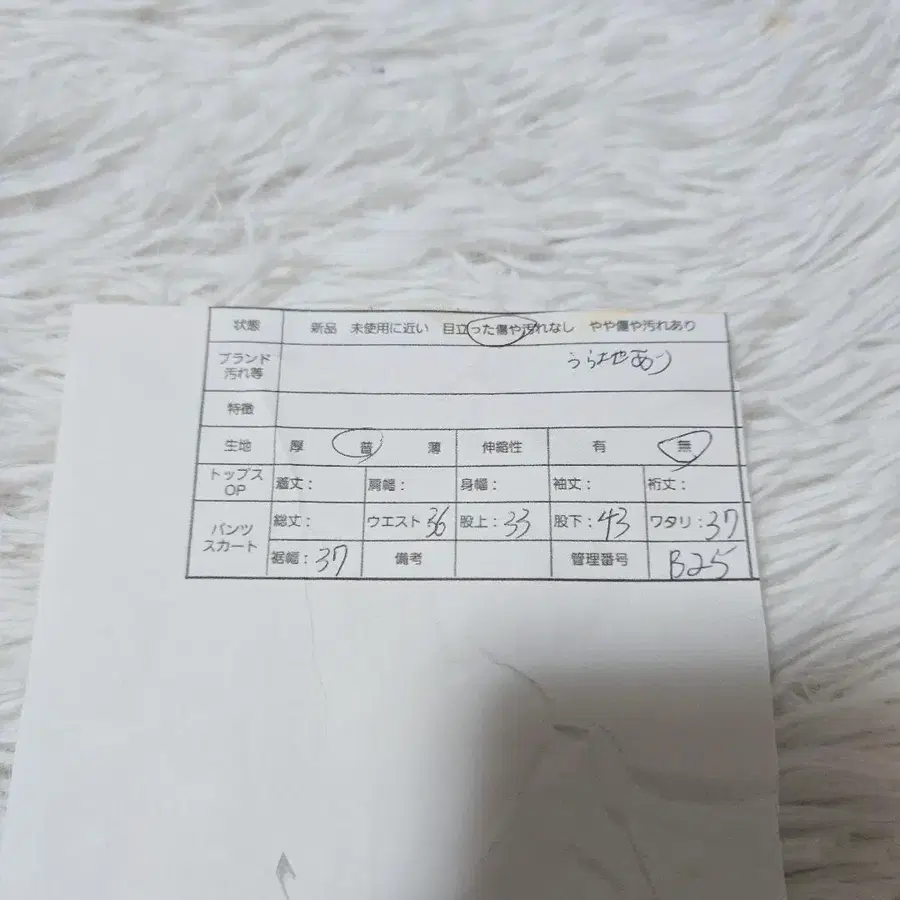 状態 新品 未使用に近い 目立った傷や汚れなし やや傷や汚れあり
ブランド
汚れ等 うら地あり
特徴
生地 厚 普 薄 伸縮性 有 無
トップス
OP 着丈： 肩幅： 身幅： 袖丈： 裄丈：
パンツ
スカート 総丈： ウエスト 36 股上：33 股下：43 ワタリ：37
裾幅：37 備考 管理番号 B25